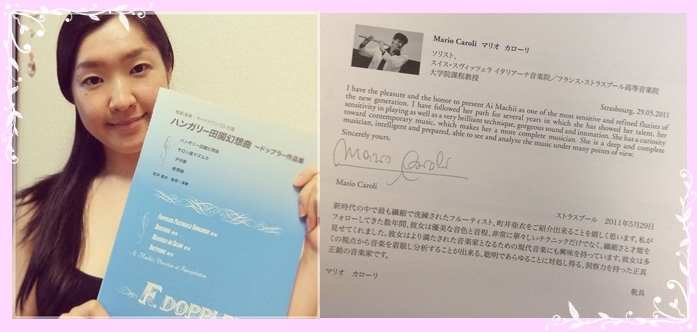 ハンガリー田園幻想曲 ードップラー作品集
ハンガリー田園幻想曲
サロン風マズルカ
子守歌
夜想曲
Fantaisie Pastorale Hongroise
Berceuse
Mazurka de Salon
Nocturne
Ai Machii: Direction et Interprétation
F. DOPPLE
Mario Caroli マリオ カローリ
ソリスト、
スイス・スヴィッツェラ イタリアーナ音楽院/フランス・ストラスブール高等音楽院
大学院課程教授
Strasbourg, 29.05.2011
I have the pleasure and the honor to present Ai Machii as one of the most sensitive and refined flutists of
the new generation. I have followed her path for several years in which she has showed her talent, her
sensitivity in playing as well as a very brilliant technique, gorgeous sound and intonation. She has a curiosity
toward contemporary music, which makes her a more complete musician. She is a deep and complete
musician, intelligent and prepared, able to see and analyze the music under many points of view.
Sincerely yours,
Mario Caroli
Mario Caroli
ストラスブール 2011年5月29日
新時代の中で最も繊細で洗練されたフルーティスト、町井亜衣をご紹介出来ることを嬉しく思います。私が
フォローしてきた数年間、彼女は優美な音色と音程、非常に華々しいテクニックだけでなく、繊細さと才能を
見せてくれました。彼女はより満たされた音楽家となるための現代音楽にも興味を持っています。彼女は多
くの視点から音楽を着眼し分析することが出来る、聡明であらゆることに対処し得る、洞察力を持った正真
正銘の音楽家です。
敬具
マリオ カローリ